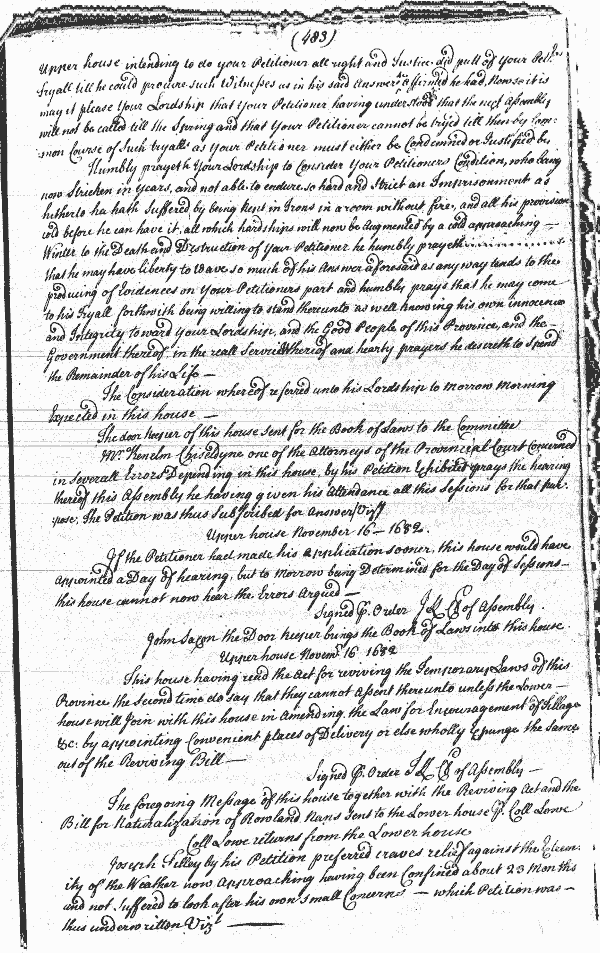 (483)
Upper house intending to do your Petitioner all right and Justice did pull of Your Petrs
Tryall till he could procure such Witnesses as in his said Answere he affirmed he had, Now so it is
may it please Your Lordship that Your Petitioner having understood that the next Assembly
will not be called till the Spring and that Your Petitioner cannot be tryed till then by Com:
:mon Course of Such tryalls as Your Petitioner must either be Condemned or Justified by
Humbly prayeth Your Lordship to Consider Your Petitioners Condition, who being
now Stricken in years, and not able to endure so hard and Strict an Imprisonment as
hitherto he hath Suffered by being kept in Irons in a room without fire, and all his provision
cold before he can have it, all which hardships will now be Augmented by a cold approaching —
Winter to the Death and Distruction of Your Petitioner he humbly prayeth
that he may have liberty to Wave so much of his Answer aforesaid as any way tends to the
producing of Evidences on Your Petitioners part and humbly prays that he may come
to his Tryall forthwith being willing to stand thereunto as well knowing his own innocence
and Integrity toward Your Lordship, and the Good People of this Province, and the
Government thereof, in the reall Service Whereof and hearty prayers he desireth to Spend
the Remainder of his Life —
The Consideration whereof referred unto his Lordship to Morrow Morning
Expected in this house —
The door keeper of this house Sent for the Book of Laws to the Committee
Mr. Kenelm Chiseldyne one of the Attorneys of the Provincial Court Concerned
in Severall Errors Depending in this house, by his Petition Exhibited prays the hearing
thereof this Assembly he having given his Attendance all this Sessions for that pur:
:pose, The Petition was thus Subscribed for Answer Vizt
Upper house November 16 — 1682.
If the Petitioner had made his Application sooner, this house would have
Appointed a Day of hearing, but to Morrow being Determined for the Day of Sessions —
this house cannot now hear the Errors Argued —
Signed P. Order of Assembly.
John Saxon the Door keeper brings the Book of Laws into this house
Upper house Novemr. 16 1682
This house having read the Act for reviving the Temporary Laws of this
Province the Second time do say that they cannot Assent thereunto unless the Lower —
house will Join with this house in Amending the Law for Encouragement of Tillage
&c. by appointing Convenient places of Delivery or else wholly Expunge the Same
out of the Reviving Bill —
Signed P. Order of Assembly —
The foregoing Message of this house together with the Reviving Act and the
Bill for Naturalization of Rowland Nans Sent to the Lower house P. Coll Lowe
Coll Lowe returns from the Lower house
Joseph Tilley by his Petition preferred craves relief against the Extem:
ity of the Weather now Approaching having been Confined about 23 Months
and not Suffered to look after his own Small Concerns — which Petition was —
thus underwritten Vizt —